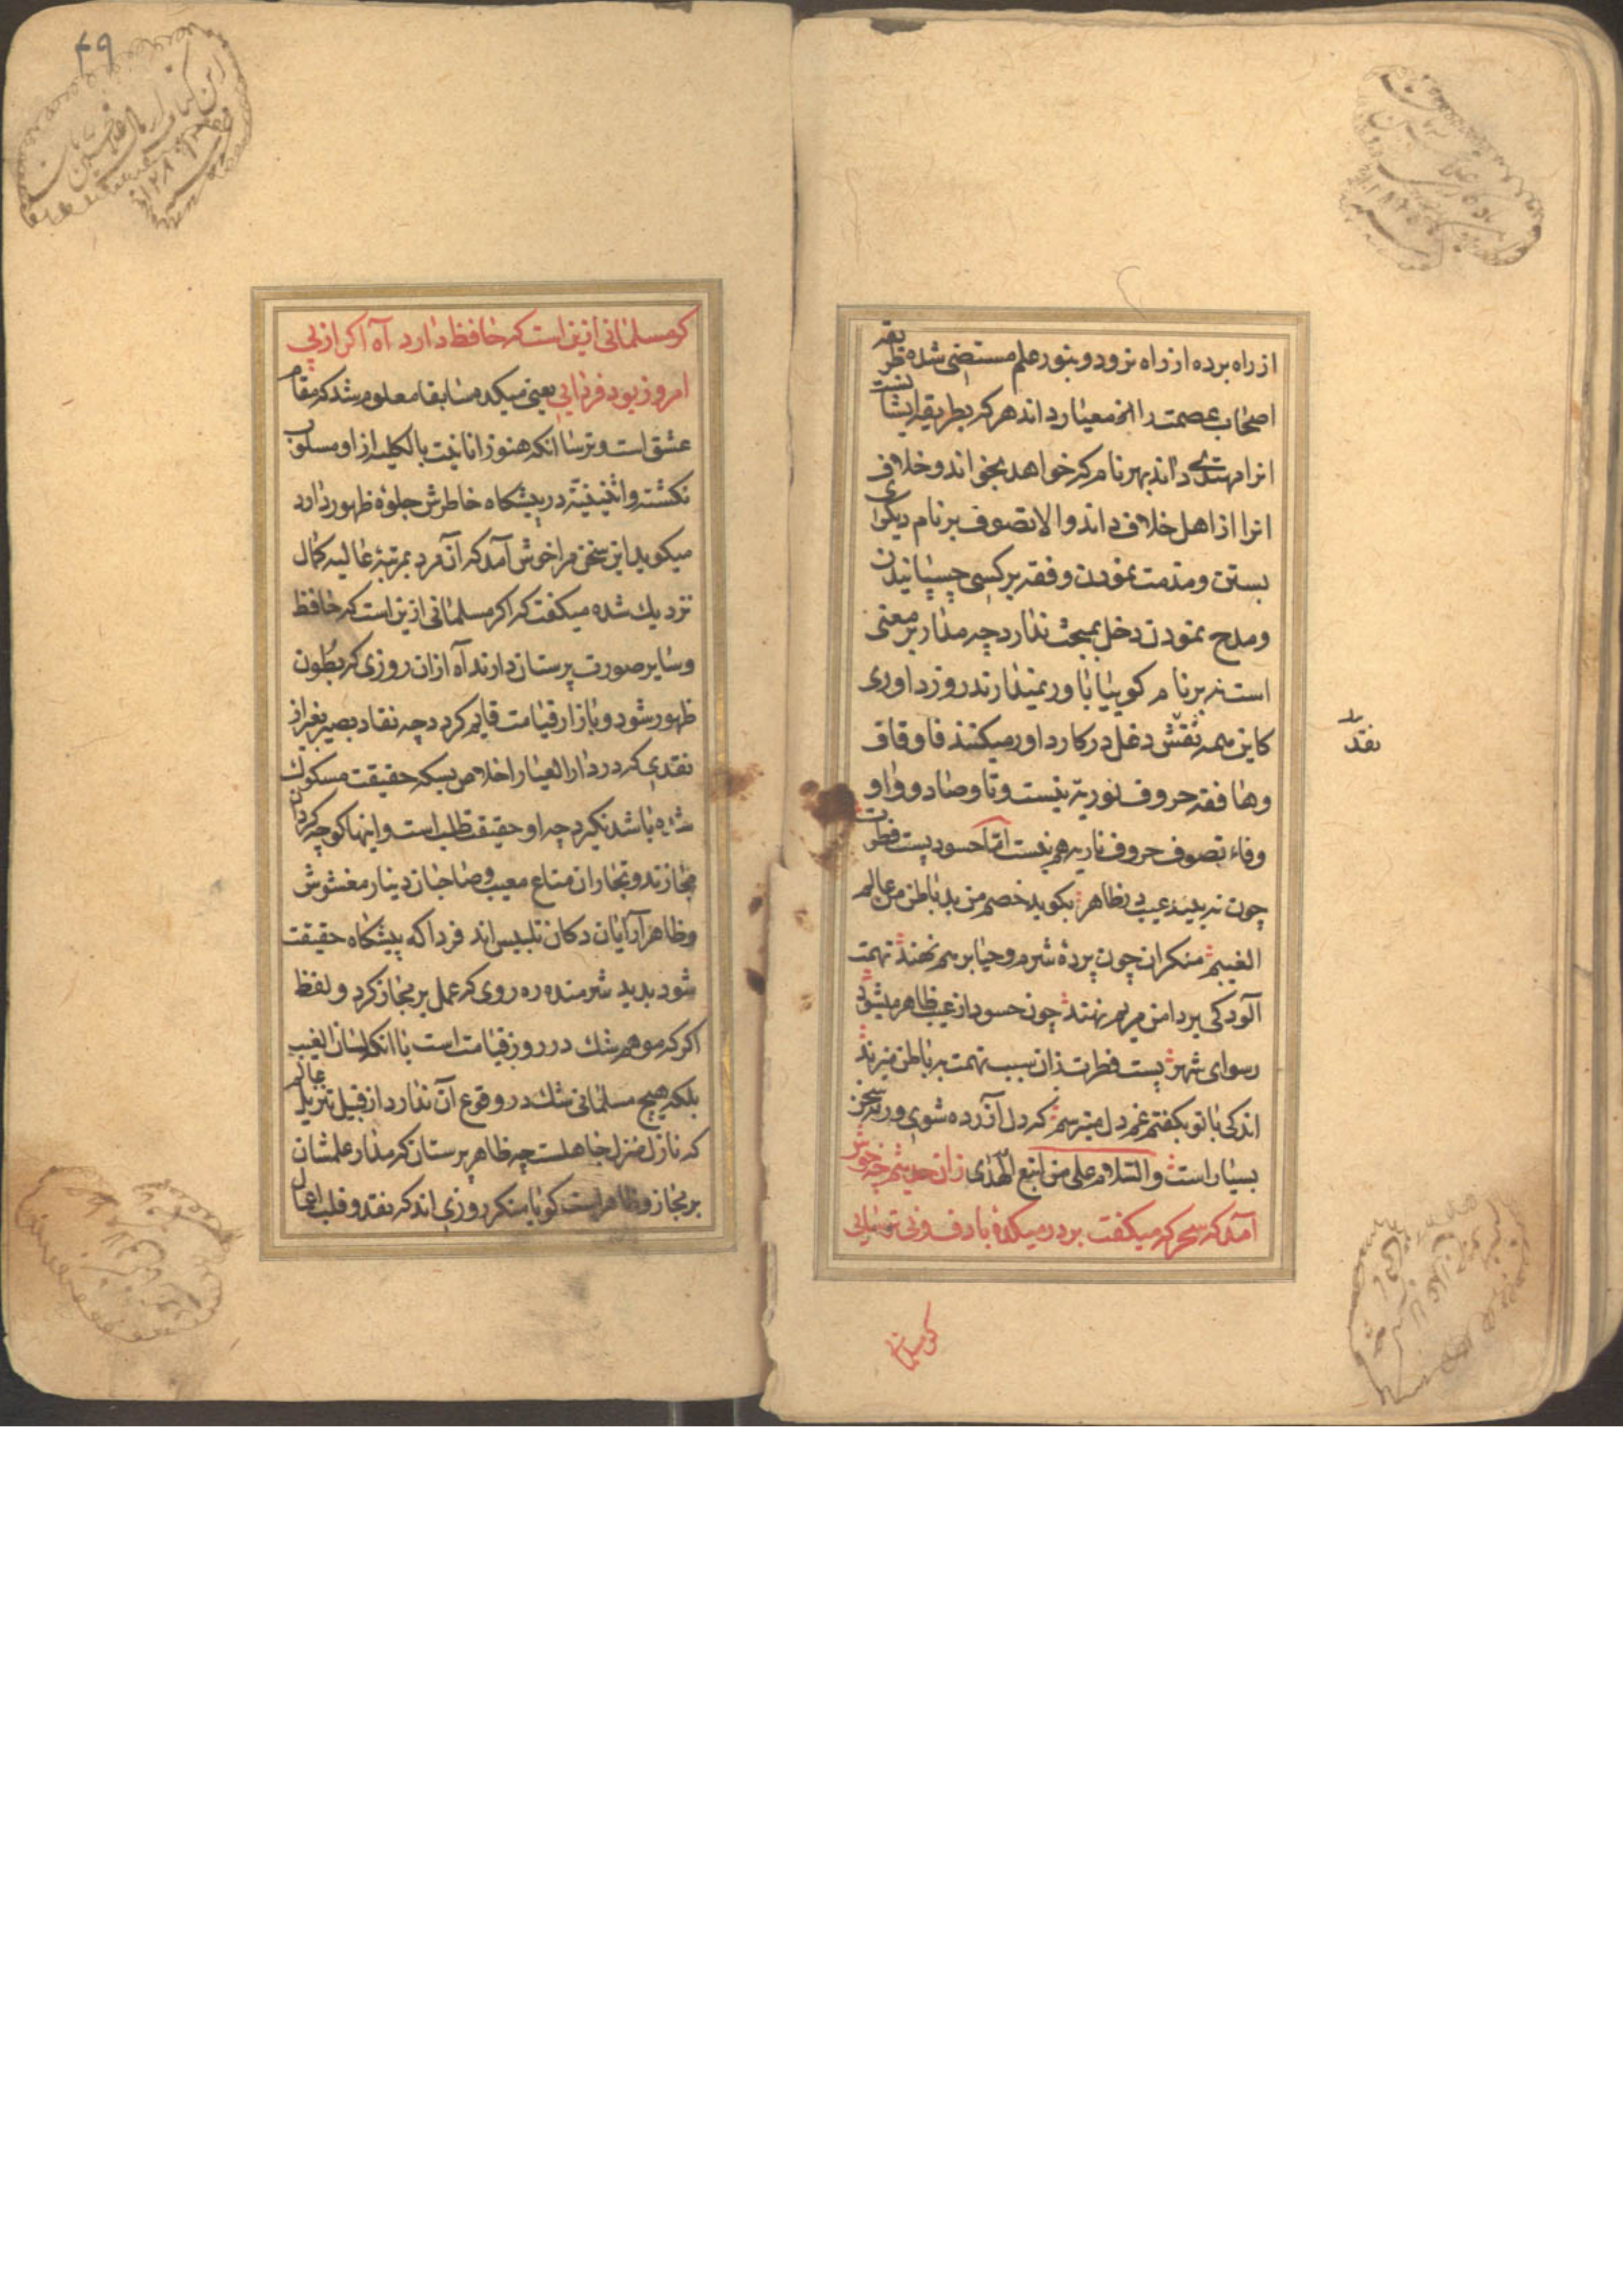 از راه برده از راه نرود و بنور علم مستضئ شده طریقه
اصحاب عصمت را معیار داند هر که بطریقه ایشانست
انرا مهتدی داند بهر نام که خواهد بخواند و خلاف
انرا از اهل خلاف داند والا تصوف بر نام دیگری
بستن و مذمت نمودن و فقه بر کسی چسپانیدن
و مدح نمودن دخل بمبحث ندارد چه مدار بر معنی
است نه بر نام کوییا باور نمیدارند روز داوری
کاین همه نقش دغل در کار داور میکنند فا و قاف
نقد
و ها فقه حروف نوریه نیست و تا و صاد و واو
و فاء تصوف حروف ناریه هم نیست اما حسود پست فطرت
چون ندیند عیبی بظاهر بکوید خصم من بد باطن من عالم
الغیبم منکران چون پردهٔ شرم و حیا برهم نهند تهمت
آلودکی بر دامن مریم نهند چون حسود از عیب ظاهر میشود
رسوای شهر پست فطرت زان سبب تهمت بر باطن میزند
اندکی با تو بکفتم غم دل میترسم که دل آزرده شوی ورنه سخن
بسیار است والسلام علی من اتبع الهدی زان حدیثم چه خوش
آمد که سحرکه میکفت بر در میکده با دف و نی ترسایی
کر مسلمانی
۴۹
کر مسلمانی ازین است که حافظ دارد آه اکر از پی
امروز بود فردایی یعنی میکده سابقا معلوم شد که مقام
عشق است و ترسا انکه هنوز انانیت بالکلیه از او مسلوب
نکشته و اثنینیة در پیشکاه خاطرش جلوهٔ ظهور دارد
میکوید این سخن مرا خوش آمد که آن مرد بمرتبهٔ عالیه کمال
نزدیك شده میکفت که اکر مسلمانی ازین است که حافظ
و سایر صورت پرستان دارند آه از ان روزی که بطون
ظهور شود و بازار قیامت قایم کردد چه نقاد بصیر بغیر از
نقدی که در دار العیار اخلاص بسکه حقیقت مسکوك
شده باشد نکیرد چه او حقیقت طلب است و اینها کوچه کردان
مجازند و تجاران متاع معیب و صاحبان دینار مغشوش
و ظاهر آرایان دکان تلبیس اند فردا که پیشکاه حقیقت
شود پدید شرمنده ره روی که عمل بر مجاز کرد و لفظ
اکر که موهم شك در روز قیامت است با انکه لسان الغیب
بلکه هیچ مسلمانی شك در وقوع آن ندارد از قبیل تنزیل عالم
که نازل منزل جاهلست چه ظاهر پرستان که مدار علمشان
بر مجاز و ظاهر است کویا منکر روزی اند که نقد و قلب اعمال